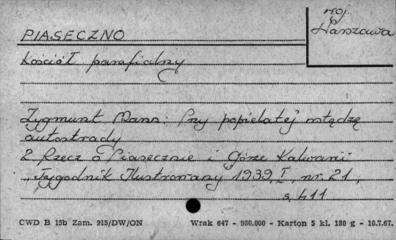 PIASECZNO
woj.
Warszawa
Kościół parafialny
Zygmunt Mann: Przy popielatej wstędze
autostrady
2. Rzecz o Piasecznie i Górze Kalwarii
"Tygodnik Ilustrowany 1939, I, nr. 21,
s. 411
CWD B 15b Zam. 913/DW/ON Wrak 647 - 980.000 - Karton 5 kl. 180 g - 10.7.67.